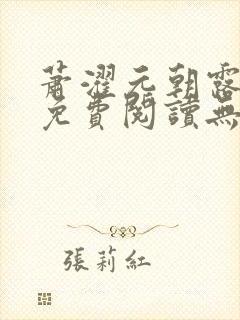 蕭濯元朝露
免費閱讀無
張莉紅